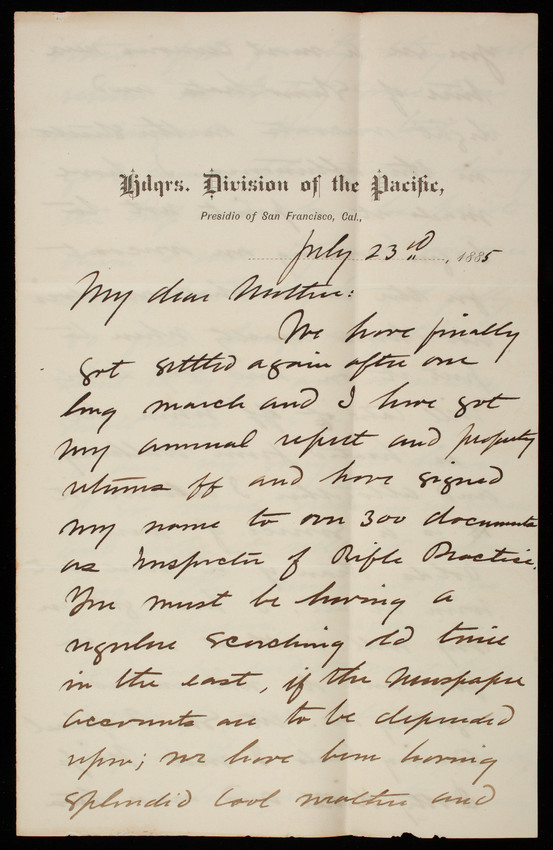 Hdqrs. Division of the Pacific,
Presidio of San Francisco, Cal.,
July 23rd, 1885
My dear Mother:
We have finally
got settled again after our
long march and I have got
my annual report and property
returns off and have signed
my name to over 300 documents
as Inspector of Rifle Practice.
You must be having a
regular scorching old time
in the east, if the Newspaper
accounts are to be depended
upon; we have been having
splendid cool weather and